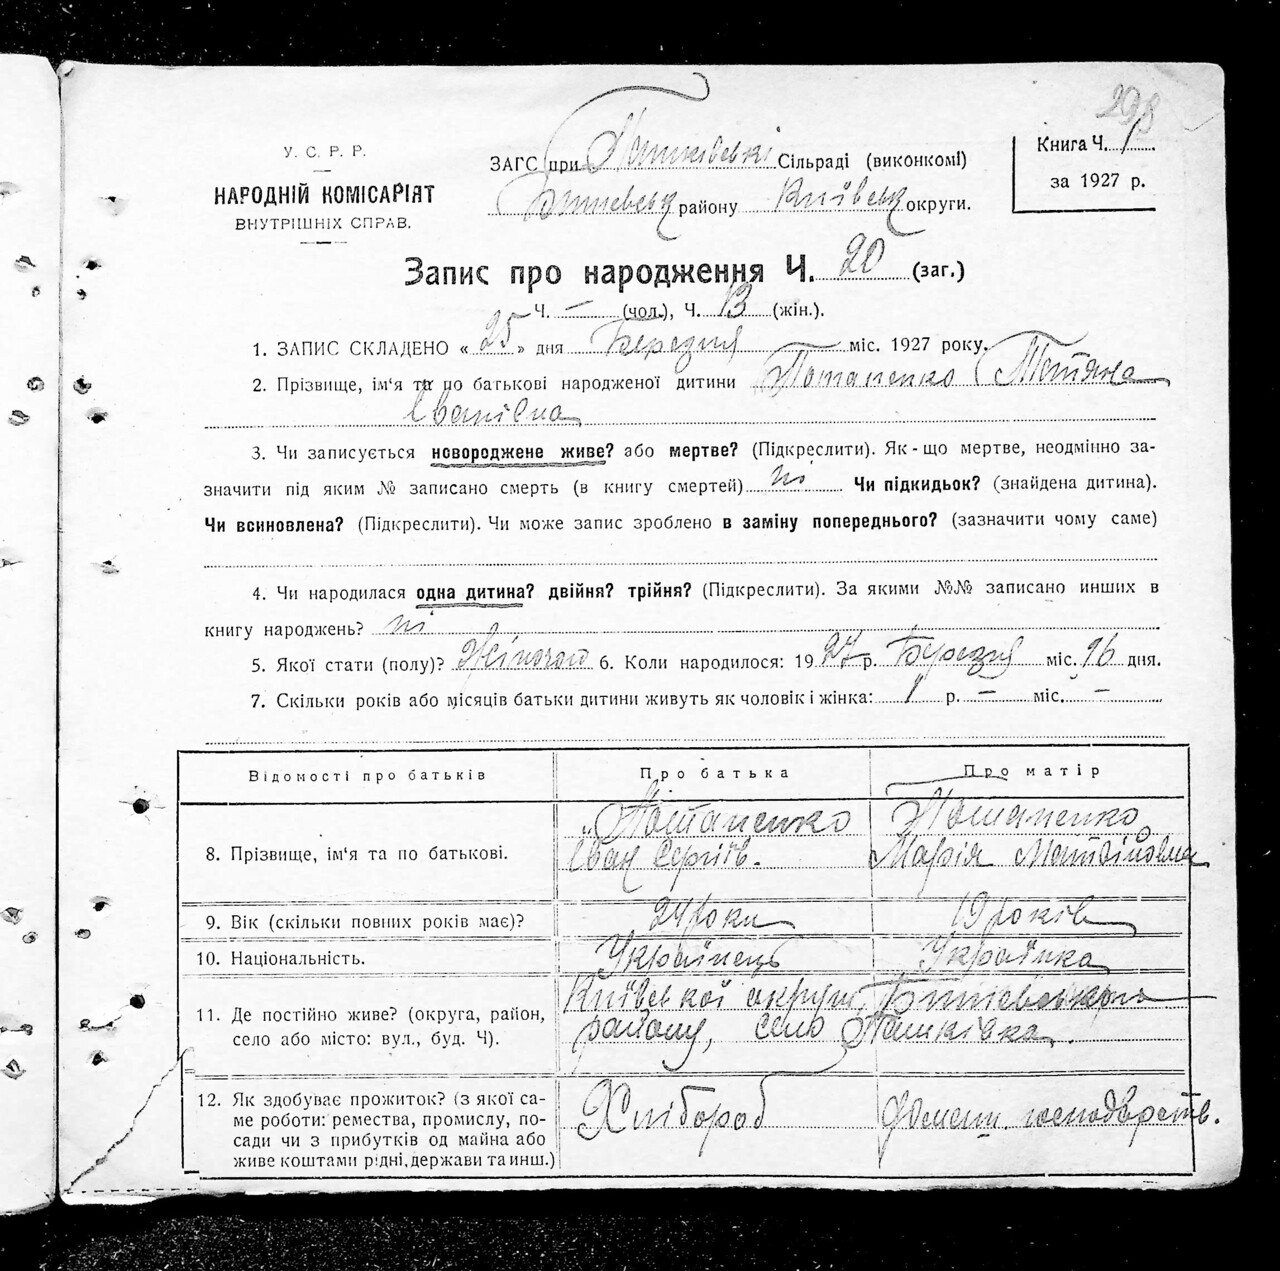 298
У. С. Р. Р.
НАРОДНІЙ КОМІСАРІЯТ
ВНУТРІШНІХ СПРАВ.
ЗАГС при Пашківські Сільраді (виконкомі)
Бишевськ району Київськ округи.
Книга Ч. 1
за 1927 р.
Запис про народження Ч. 20 (заг.)
Ч. — (чол.), Ч. 13 (жін.).
1. ЗАПИС СКЛАДЕНО « 25 » дня Березня міс. 1927 року.
2. Прізвище, ім‘я та по батькові народженої дитини Потапенко Тетяна
Іванівна
3. Чи записується новороджене живе? або мертве? (Підкреслити). Як-що мертве, неодмінно за-
значити під яким № записано смерть (в книгу смертей) ні Чи підкидьок? (знайдена дитина).
Чи всиновлена? (Підкреслити). Чи може запис зроблено в заміну попереднього? (зазначити чому саме)
4. Чи народилася одна дитина? двійня? трійня? (Підкреслити). За якими №№ записано инших в
книгу народжень? ні
5. Якої стати (полу)? Жіночого 6. Коли народилося: 1927 р. Березня міс. 16 дня.
7. Скільки років або місяців батьки дитини живуть як чоловік і жінка: 1 р. — міс. —
Відомості про батьків Про батька Про матір
8. Прізвище, ім‘я та по батькові. Потапенко Іван Сергіїв. Потапенко Марія Матвійовна
9. Вік (скільки повних років має)? 24 роки 19 років
10. Національність. Українець Українка
11. Де постійно живе? (округа, район, Київської округи, Бишевського
село або місто: вул., буд. Ч). району, село Пашківка.
12. Як здобуває прожиток? (з якої са-
ме роботи: ремества, промислу, по- Хлібороб господарств.
сади чи з прибутків од майна або
живе коштами рідні, держави та инш.)